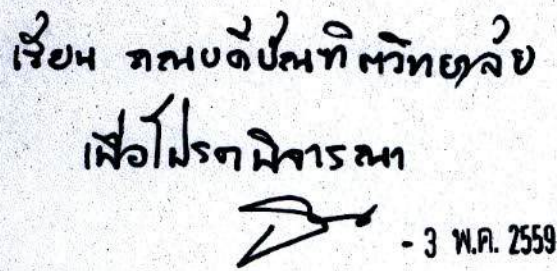 เรียน คณบดีบัณฑิตวิทยาลัย
เพื่อโปรดพิจารณา
- 3 พ.ค. 2559